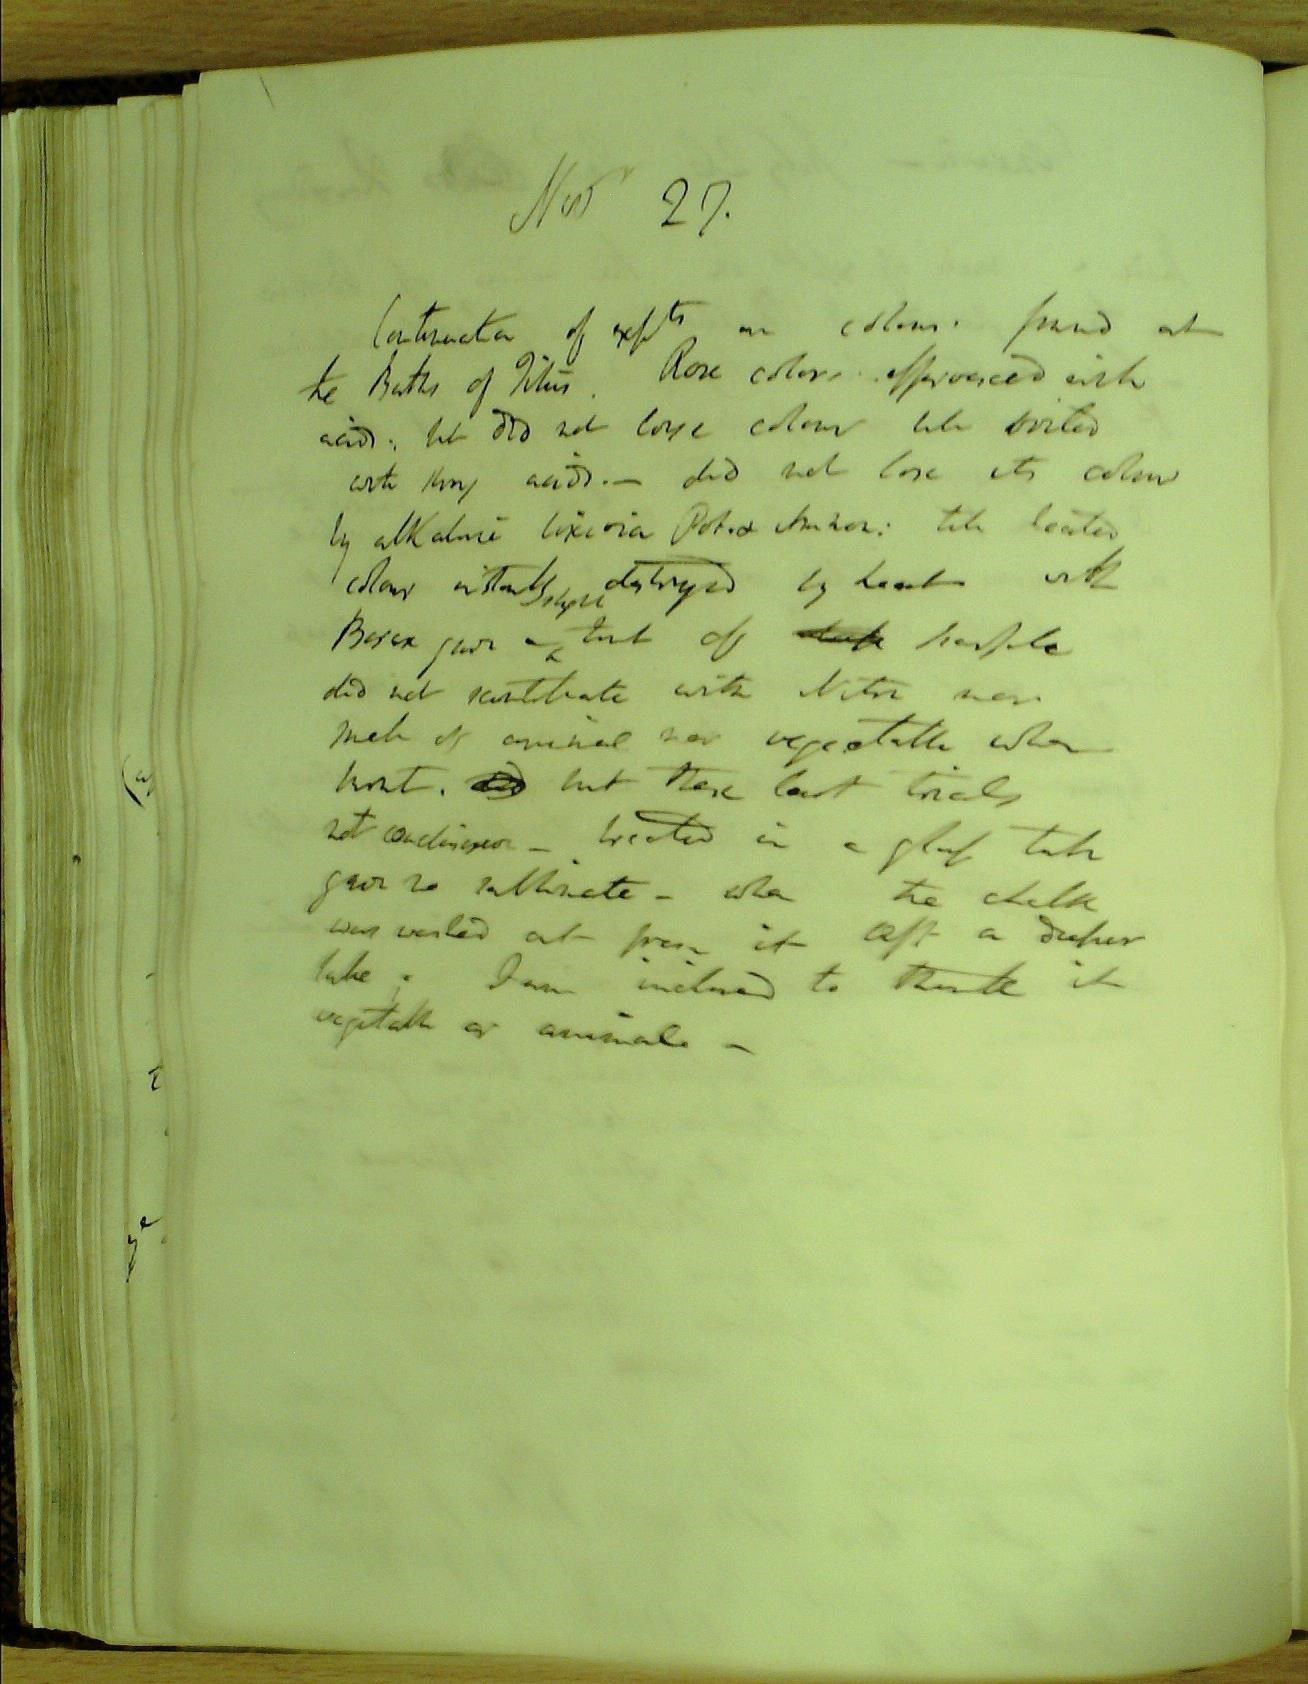 Nov 27.
Continuation of exp^ts on colours found at
the Baths of Titus. Rose colour effervesced with
acids. but did not lose colour till boiled
with strong acids. — did not lose its colour
by alkaline lixivia till heated
colour instantly destroyed by heat with
Borax gave a slight tint of purple
did not scintillate with Nitre nor
smell of animal nor vegetable when
burnt. but these last trials
not conclusive — heated in a glass tube
gave no sublimate — when the chalk
was washed out from it left a deeper
lake; I am inclined to think it
vegetable or animal —